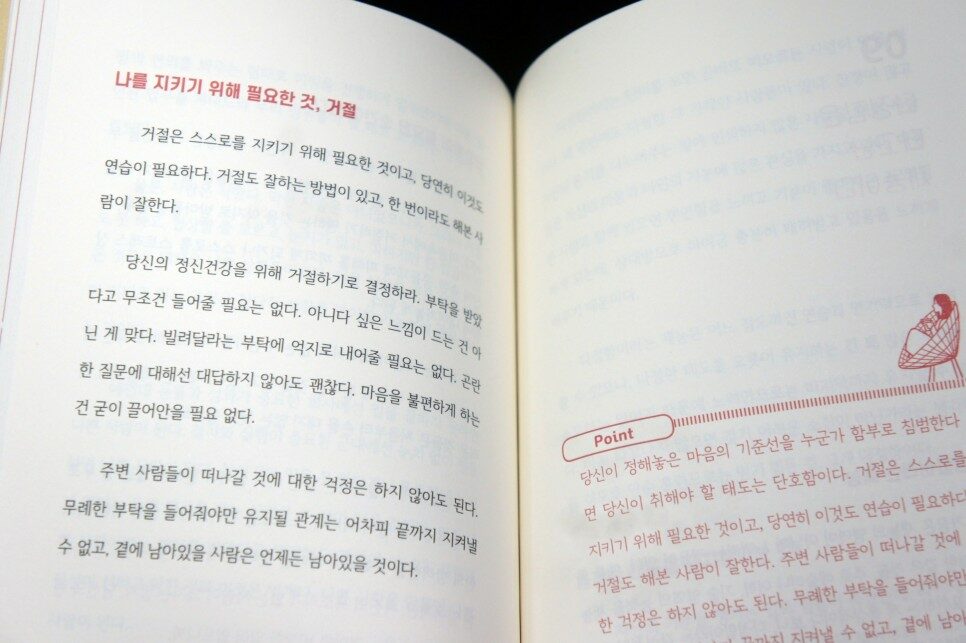 나를 지키기 위해 필요한 것, 거절
거절은 스스로를 지키기 위해 필요한 것이고, 당연히 이것도
연습이 필요하다. 거절도 잘하는 방법이 있고, 한 번이라도 해본 사
람이 잘한다.
당신의 정신건강을 위해 거절하기로 결정하라. 부탁을 받았
다고 무조건 들어줄 필요는 없다. 아니다 싶은 느낌이 드는 건 아
닌 게 맞다. 빌려달라는 부탁에 억지로 내어줄 필요는 없다. 곤란
한 질문에 대해선 대답하지 않아도 괜찮다. 마음을 불편하게 하는
건 굳이 끌어안을 필요 없다.
주변 사람들이 떠나갈 것에 대한 걱정은 하지 않아도 된다.
무례한 부탁을 들어줘야만 유지될 관계는 어차피 끝까지 지켜낼
수 없고, 곁에 남아있을 사람은 언제든 남아있을 것이다.
Point
당신이 정해놓은 마음의 기준선을 누군가 함부로 침범한다
면 당신이 취해야 할 태도는 단호함이다. 거절은 스스로를
지키기 위해 필요한 것이고, 당연히 이것도 연습이 필요하다
거절도 해본 사람이 잘한다. 주변 사람들이 떠나갈 것에
한 걱정은 하지 않아도 된다. 무례한 부탁을 들어줘야만
끝까지 지켜낼 수 없고, 곁에 남아